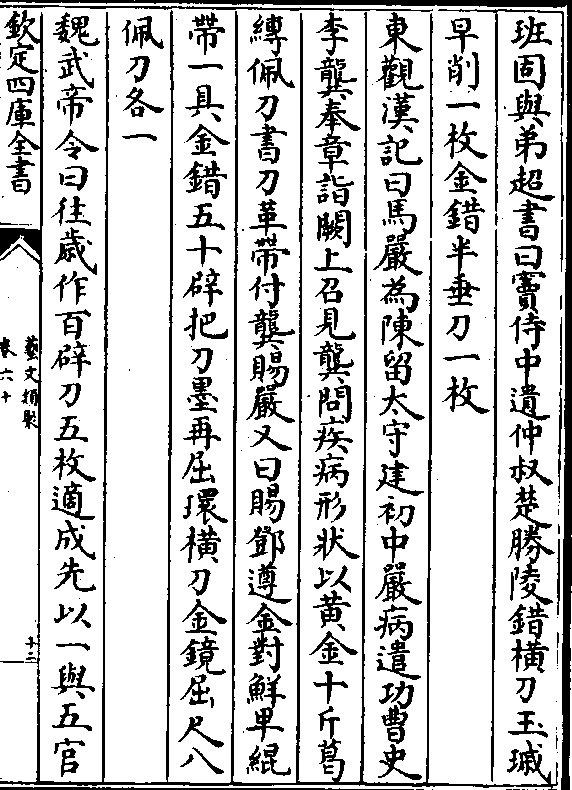 班固與弟超書曰竇侍中遺仲叔楚勝陵錯橫刀玉瑊
早削一枚金錯半垂刀一枚
東觀漢記曰馬嚴為陳留太守建初中嚴病遣功曹史
李龔奉章詣闕上召見龔問疾病形狀以黃金十斤葛
縳佩刀書刀革帶付龔賜嚴又曰賜鄧遵金對鮮卑緄
帶一具金錯五十辟把刀墨再屈環橫刀金鏡屈尺八
佩刀各一
魏武帝令曰往歲作百辟刀五枚適成先以一與五官
欽定四庫全書
藝文類聚
卷六十
十三